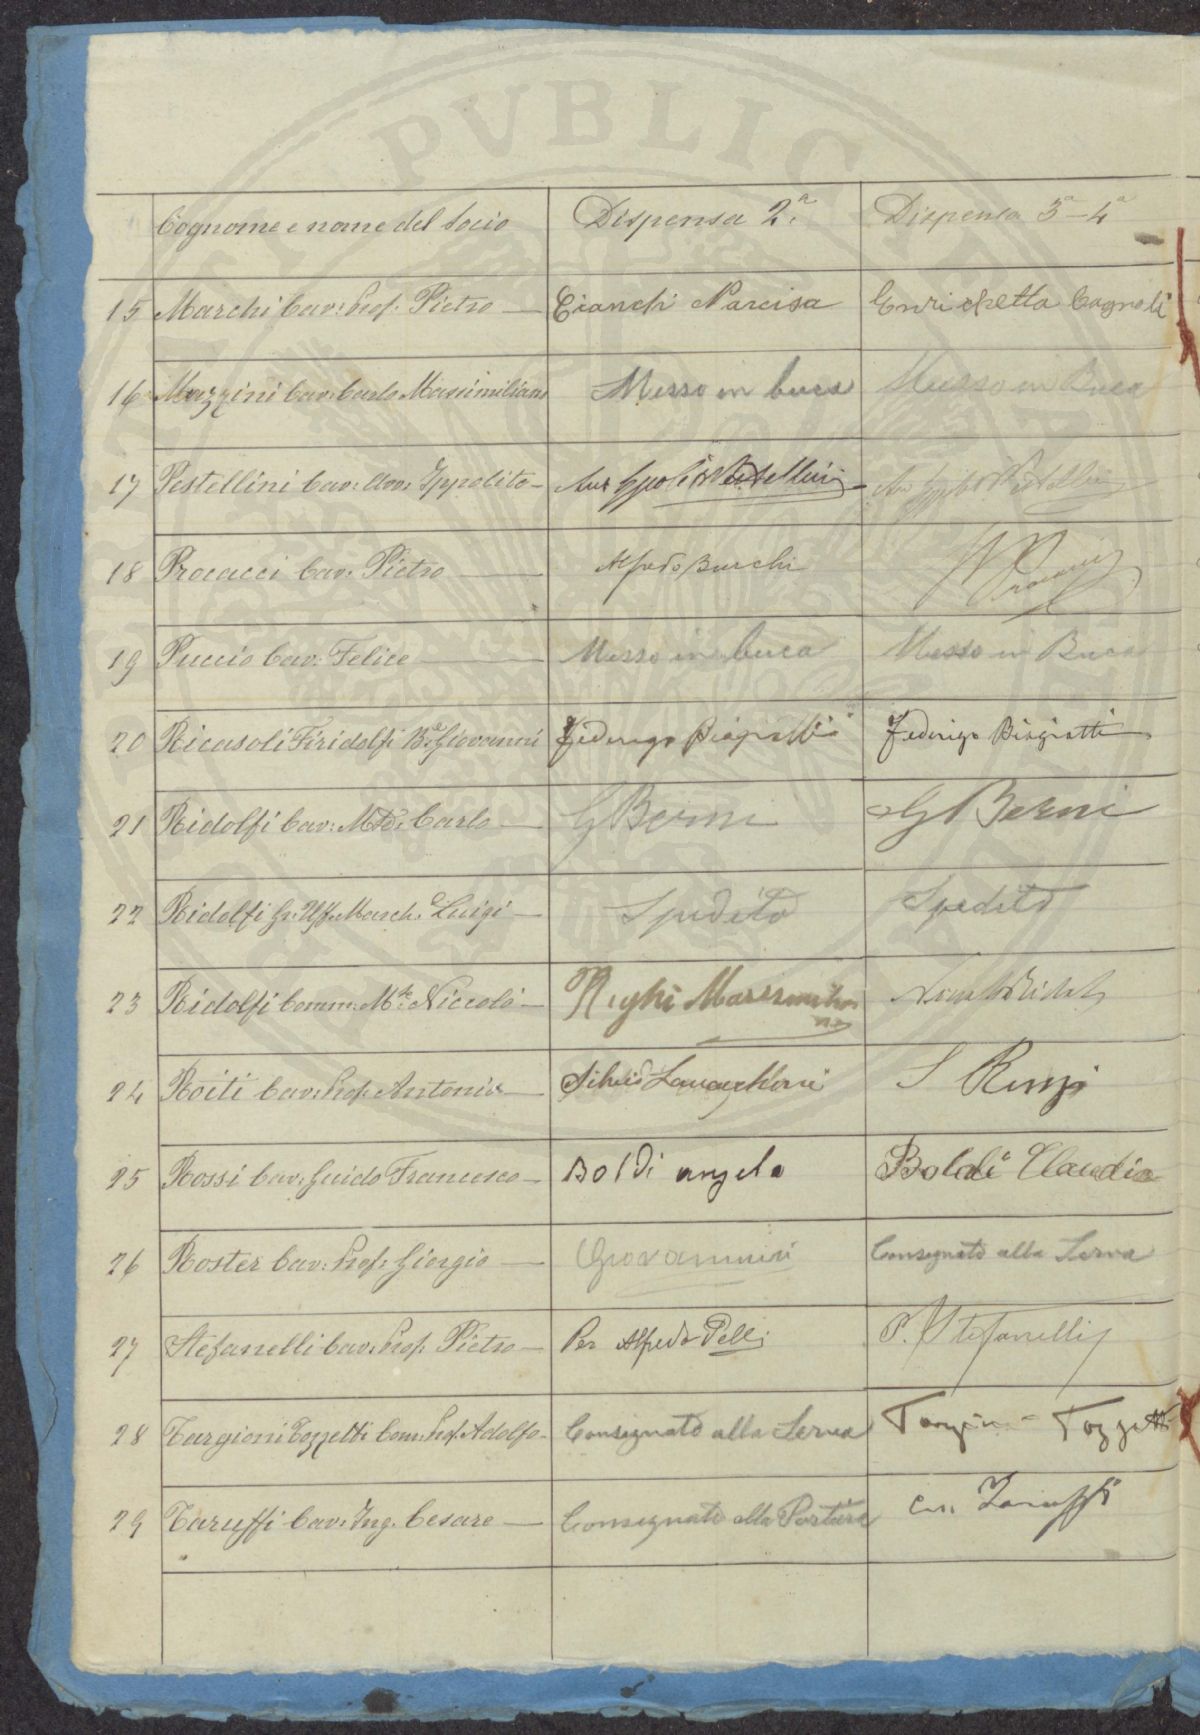 PVBLIC
Cognome e nome del Socio Dispensa 2.ª Dispensa 3ª-4ª
15 Marchi Cav: Prof. Pietro Cianchi Narcisa Enrichetta Cagnoli
16 Mazzini Cav: Carlo Massimiliano Messo in buca Messo in Buca
17 Pestellini Cav: Avv: Ippolito Avv Ippolito Pestellini Avv Ippolito Pestellini
18 Procacci Cav: Pietro Alfredo Burchi P Procacci
19 Puccio Cav: Felice Messo in buca Messo in Buca
20 Ricasoli Firidolfi B.e Giovanni Federigo Biagiotti Federigo Biagiotti
21 Ridolfi Cav: M. Carlo G Berni G Berni
22 Ridolfi Gr. Uff. March. Luigi Spedito Spedito
23 Ridolfi Comm: M.se Niccolò Righi Massimiliano
24 Roiti Cav: Prof. Antonio Silvio S
25 Rossi Cav: Guido Francesco Boldi angela Boldi Claudia
26 Roster Cav: Prof. Giorgio Giovannini Consegnato alla Serva
27 Stefanelli Cav: Prof. Pietro Per Alfredo Pelli P. Stefanelli
28 Targioni Tozzetti Com: Prof. Adolfo Consegnato alla Serva Targioni Tozzetti
29 Taruffi Cav: Ing. Cesare Consegnato alla Portiera Taruffi